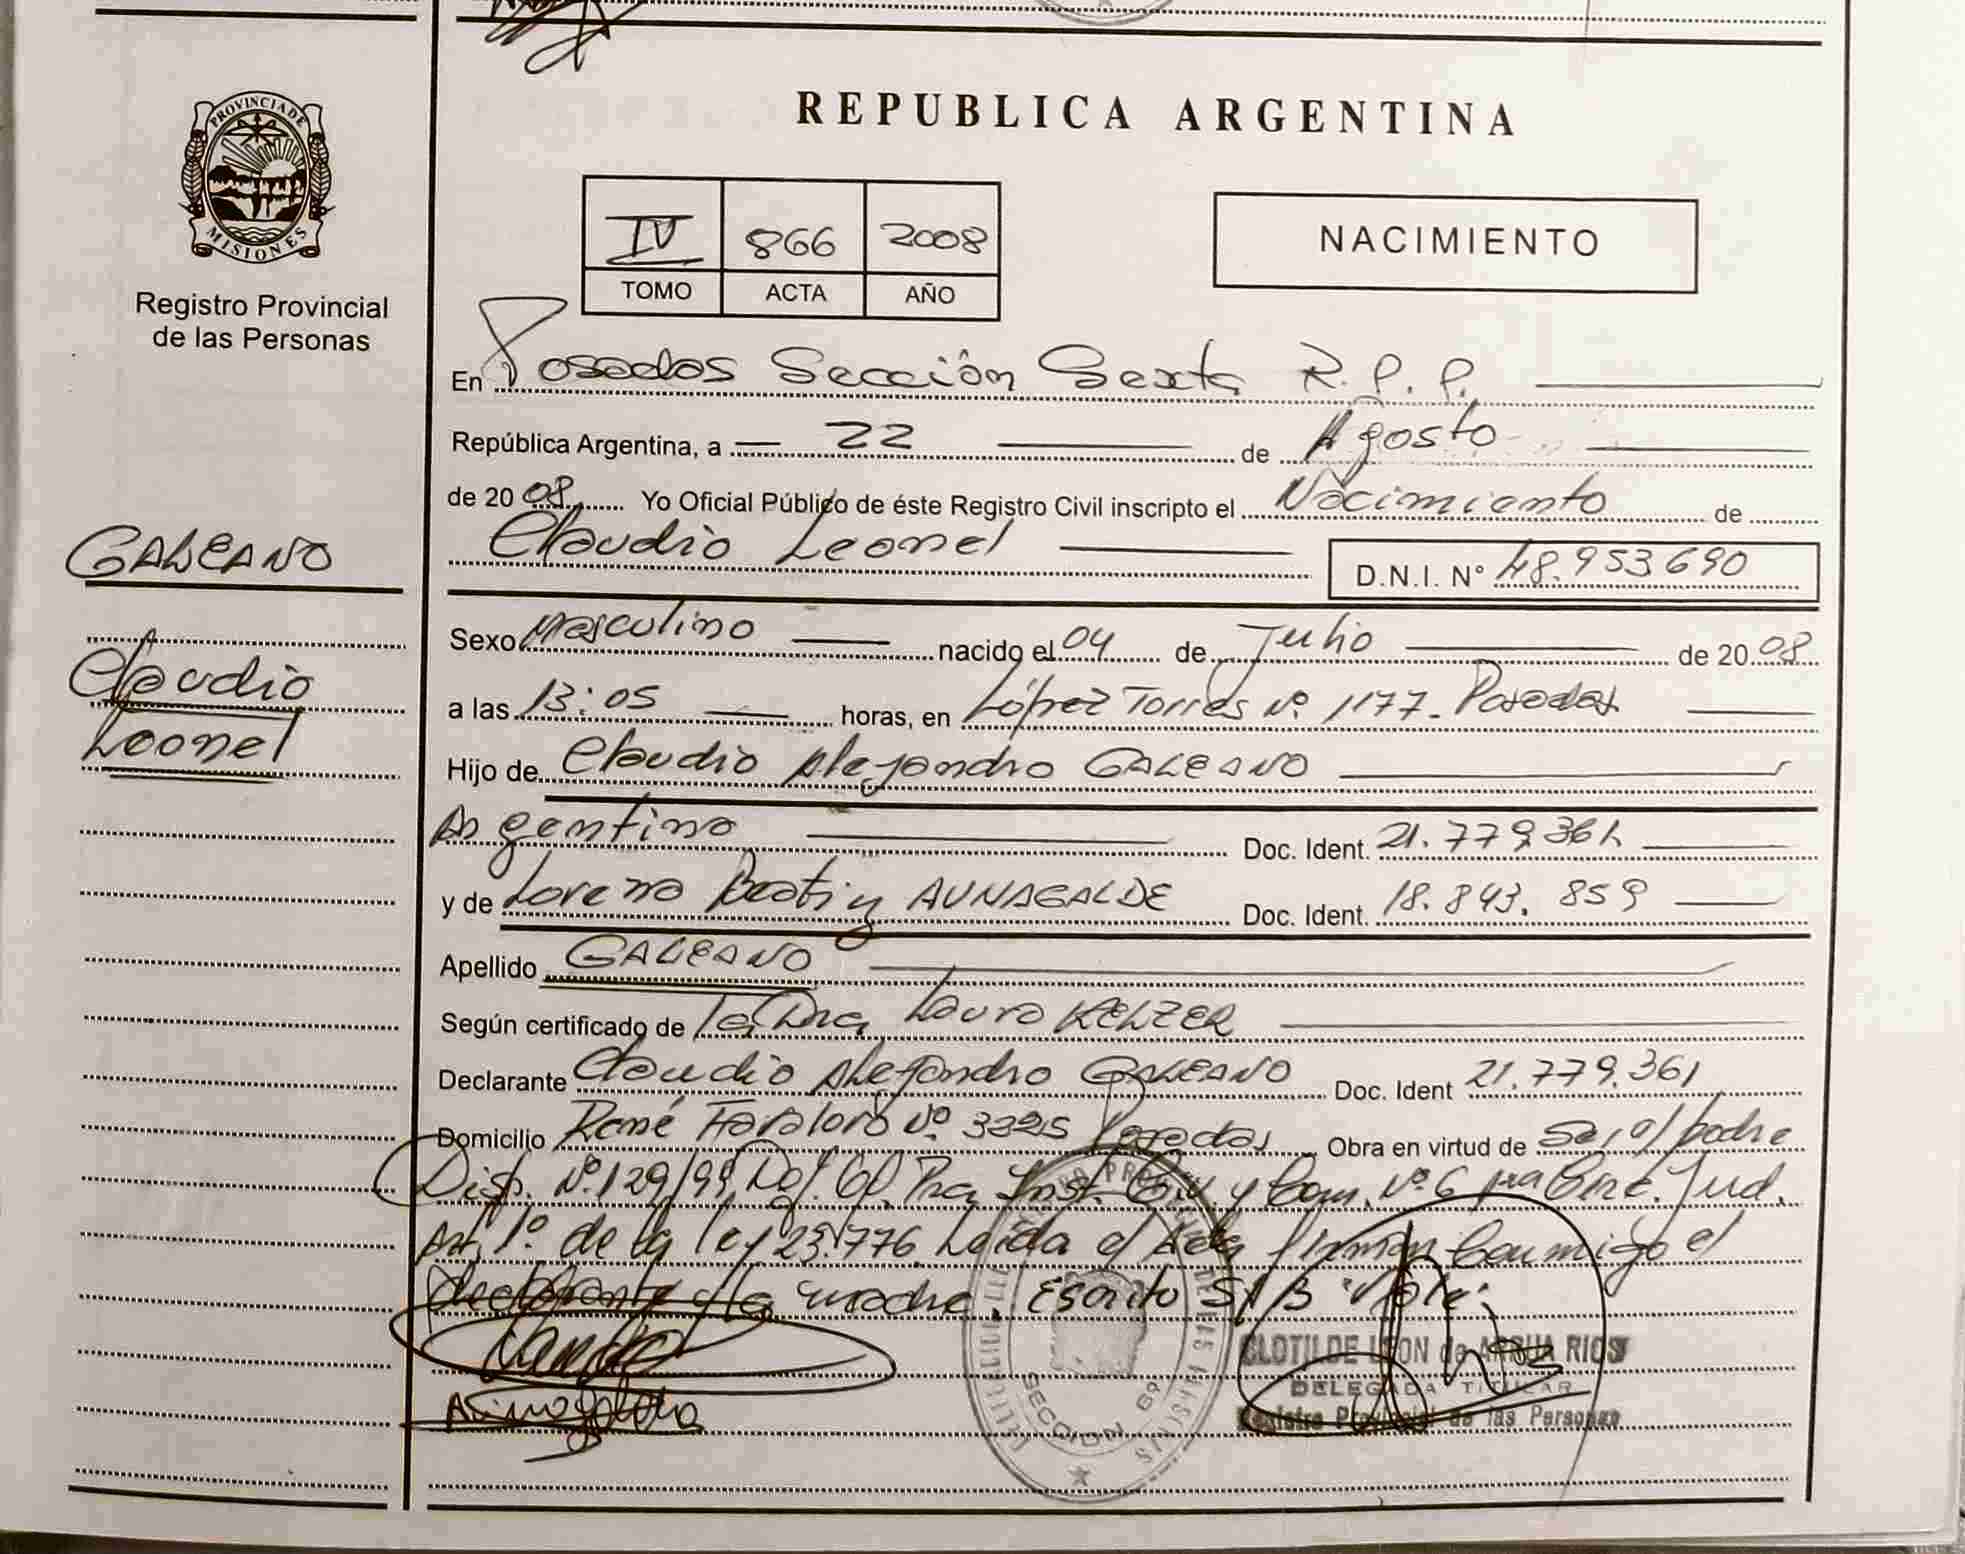 REPUBLICA ARGENTINA
PROVINCIA DE MISIONES
Registro Provincial
de las Personas
IV 866 2008
TOMO ACTA AÑO
NACIMIENTO
En Posadas Sección Sexta R.P.P.
República Argentina, a 22 de Agosto
de 2008 Yo Oficial Público de éste Registro Civil inscripto el Nacimiento de
Claudio Leonel D.N.I. Nº 48.953690
GALEANO
Claudio
Leonel
Sexo Masculino nacido el 04 de Julio de 2008
a las 13:05 horas, en López Torres Nº 1177. Posadas
Hijo de Claudio Alejandro GALEANO
Argentino Doc. Ident. 21.779.361
y de Lorena Beatriz AUNAGALDE Doc. Ident. 18.843.859
Apellido GALEANO
Según certificado de la Dra Laura KELZER
Declarante Claudio Alejandro GALEANO Doc. Ident 21.779.361
Domicilio René Favaloro Nº 3325 Posadas Obra en virtud de Ser el padre
Disp. Nº 129/99 Inst. Civ. y Com. Nº 6 Circ. Jud.
Art. 1º de la ley 23.776. Leída el Acta firman Conmigo el
declarante y la madre. Escrito S/B "Vale".
CLOTILDE LEON de ARRUA RIOS
DELEGADA TITULAR
Registro Provincial de las Personas
SECCION 6ª